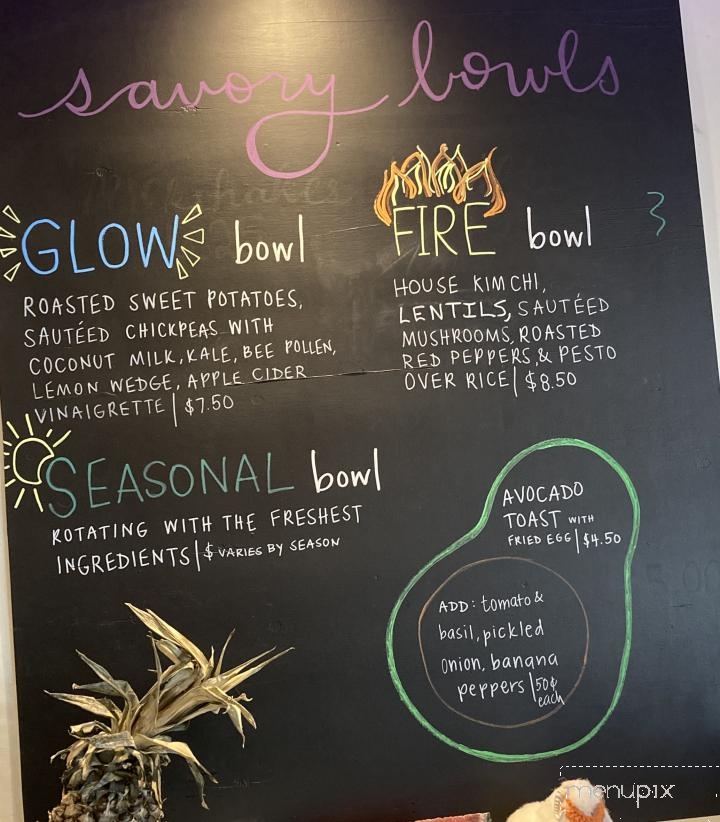 savory bowls
GLOW bowl
ROASTED SWEET POTATOES,
SAUTÉED CHICKPEAS WITH
COCONUT MILK, KALE, BEE POLLEN,
LEMON WEDGE, APPLE CIDER
VINAIGRETTE | $7.50
FIRE bowl
HOUSE KIMCHI,
LENTILS, SAUTÉED
MUSHROOMS, ROASTED
RED PEPPERS, & PESTO
OVER RICE | $8.50
SEASONAL bowl
ROTATING WITH THE FRESHEST
INGREDIENTS | $ VARIES BY SEASON
AVOCADO
TOAST WITH
FRIED EGG | $4.50
ADD: tomato &
basil, pickled
onion, banana
peppers | 50¢
each
menupix